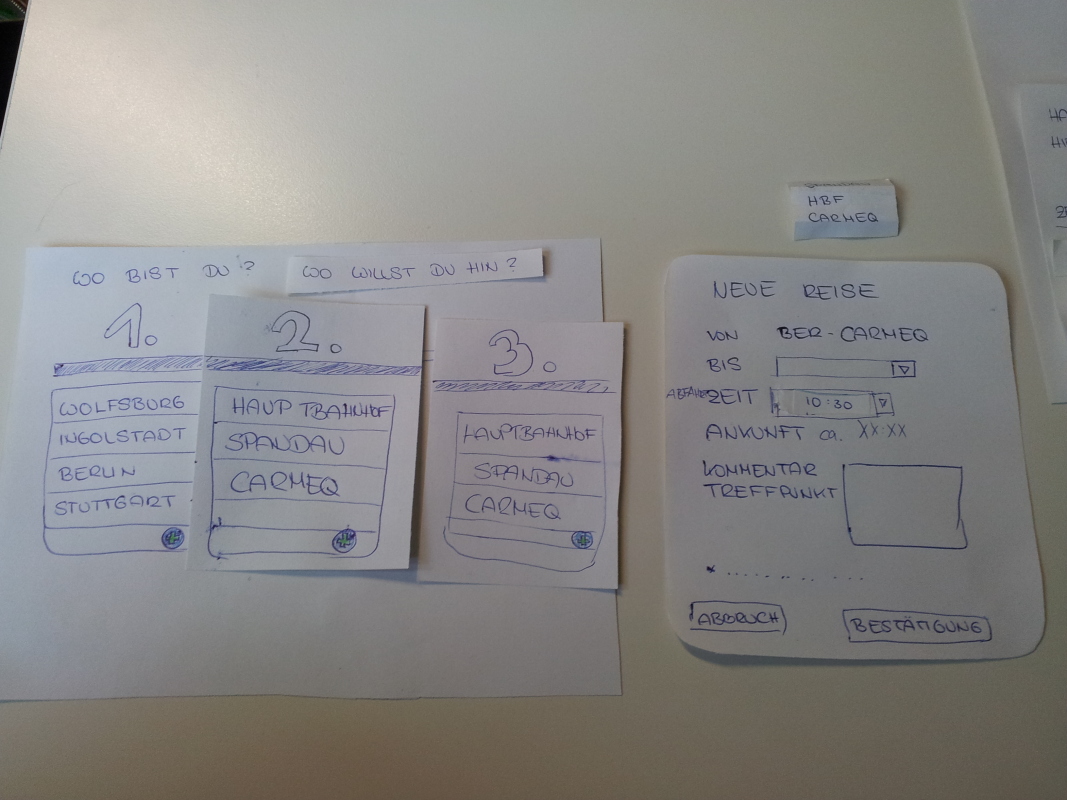 WO BIST DU?
WO WILLST DU HIN?
1.
WOLFSBURG
INGOLSTADT
BERLIN
STUTTGART
2.
HAUPTBAHNHOF
SPANDAU
CARMEQ
3.
HAUPTBAHNHOF
SPANDAU
CARMEQ
HBF
CARMEQ
NEUE REISE
VON BER-CARMEQ
BIS
ZEIT 10:30
ANKUNFT ca. XX:XX
KOMMENTAR
TREFFPUNKT
ABBRUCH
BESTÄTIGUNG
HA
HI